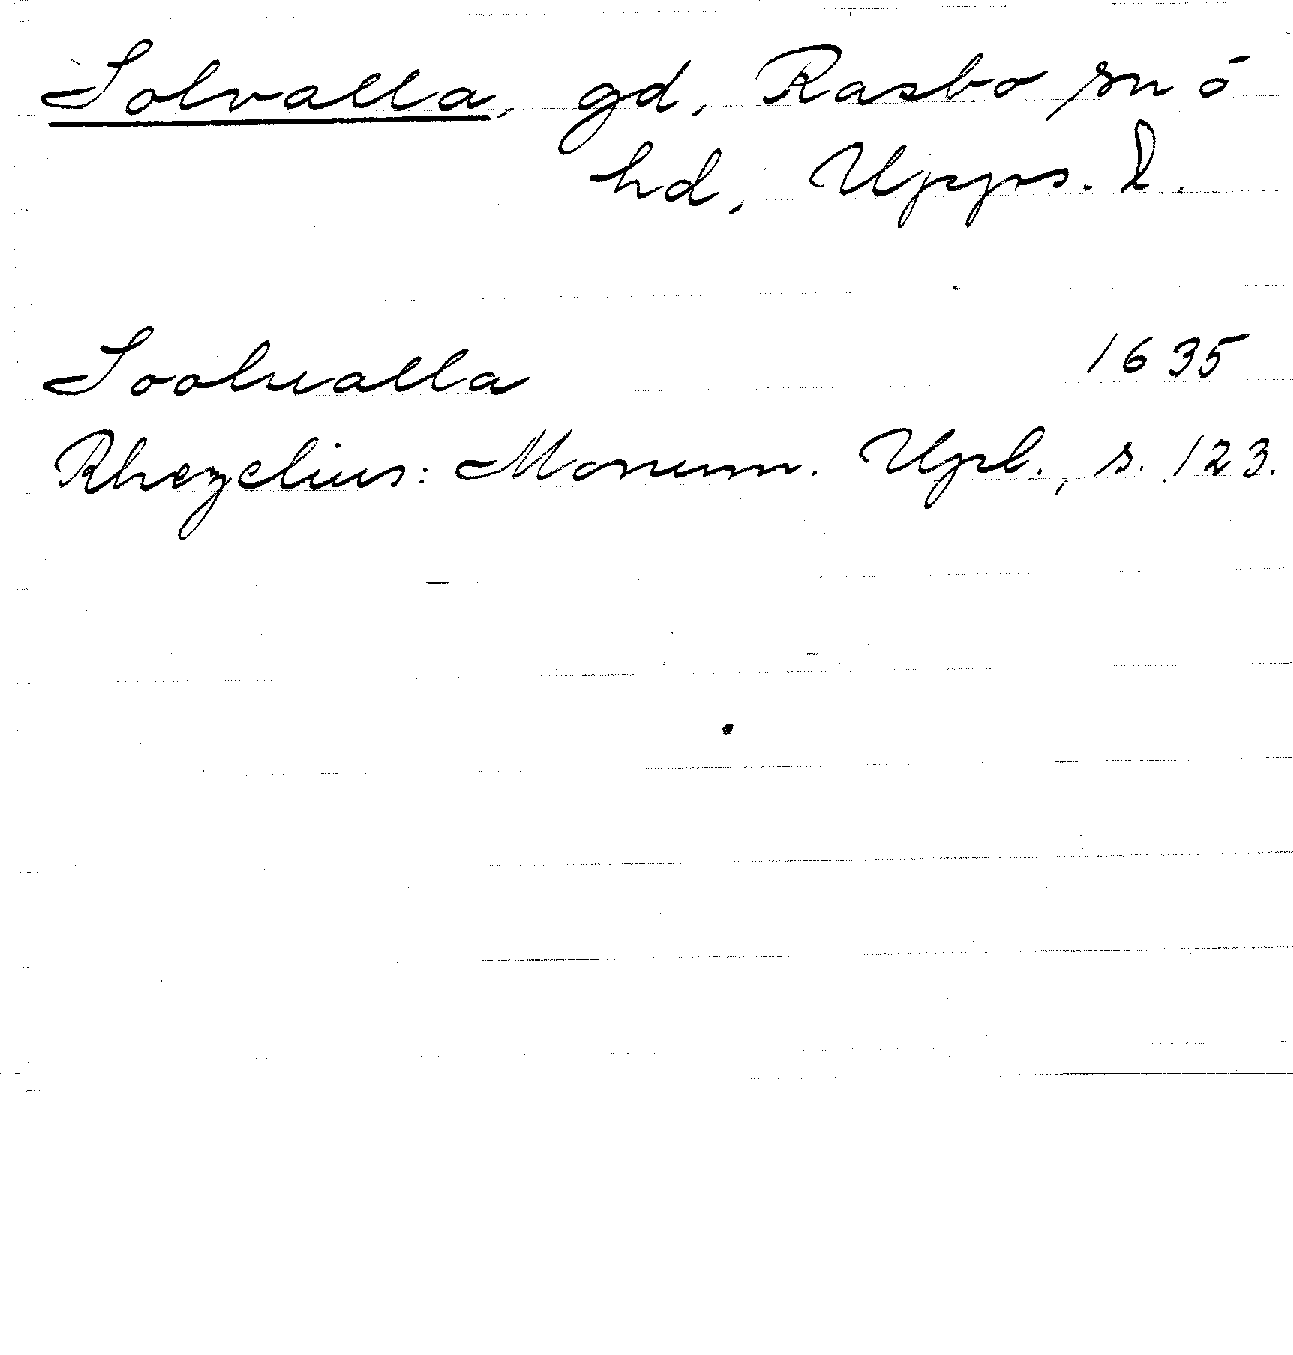 Solvalla, gd, Rasbo sn o
hd, Upps. l.
Soolualla 1635
Rhezelius: Monum. Upl., s. 123.